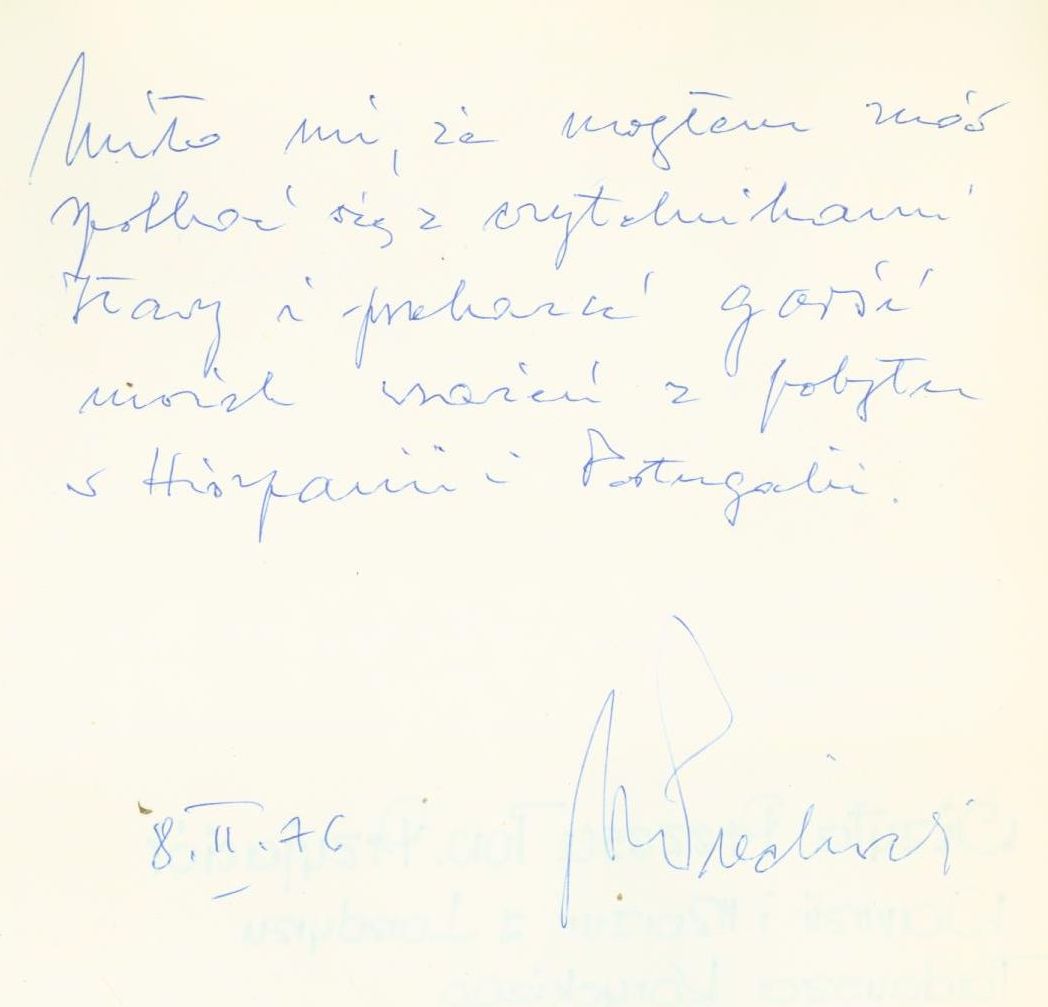 Miło mi, że mogłem znów
spotkać się z czytelnikami
i przekazać garść
moich wrażeń z pobytu
w Hiszpanii i Portugalii.
8.II.76